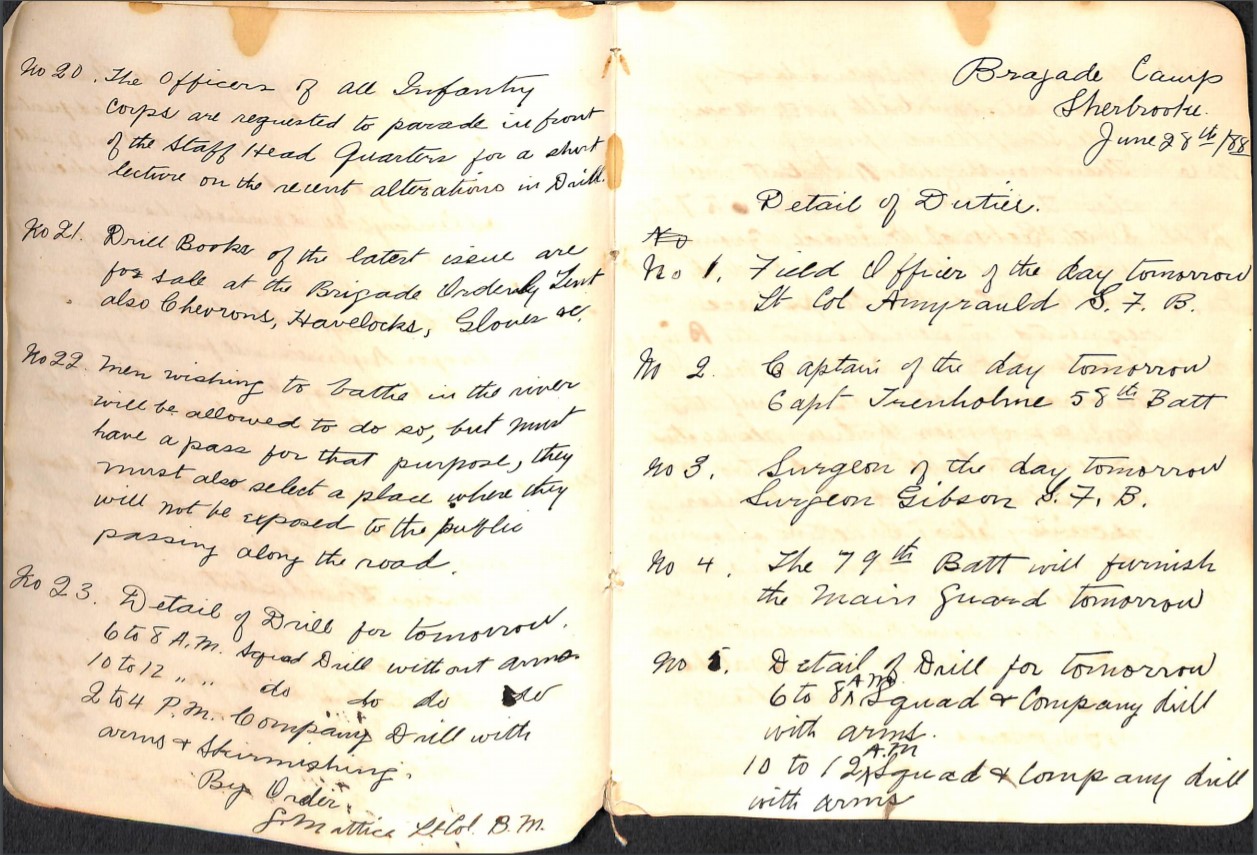 No 20. The Officers of all Infantry
Corps are requested to parade in front
of the Staff Head Quarters for a short
lecture on the recent alterations in Drill.
No 21. Drill Books of the latest issue are
for sale at the Brigade Orderly Tent
also Chevrons, Havelocks, Gloves &c.
No 22. Men wishing to bathe in the river
will be allowed to do so, but must
have a pass for that purpose, they
must also select a place where they
will not be exposed to the public
passing along the road.
No 23. Detail of Drill for tomorrow.
6 to 8 A.M. Squad Drill without arms
10 to 12 " " do do do do
2 to 4 P.M. Company Drill with
arms & Skirmishing.
By Order.
G. Mattice Lt Col. B.M.
Bragade Camp
Sherbrooke.
June 28th/88
Detail of Duties.
No
No 1. Field Officer of the day tomorrow
Lt Col Amyrauld S. F. B.
No 2. Captain of the day tomorrow
Capt Trenholme 58th Batt
No 3. Surgeon of the day tomorrow
Surgeon Gibson S. F. B.
No 4. The 79th Batt will furnish
the Main Guard tomorrow
No 5. Detail of Drill for tomorrow
6 to 8 A.M. Squad & Company drill
with arms.
10 to 12 A.M Squad & Company drill
with arms